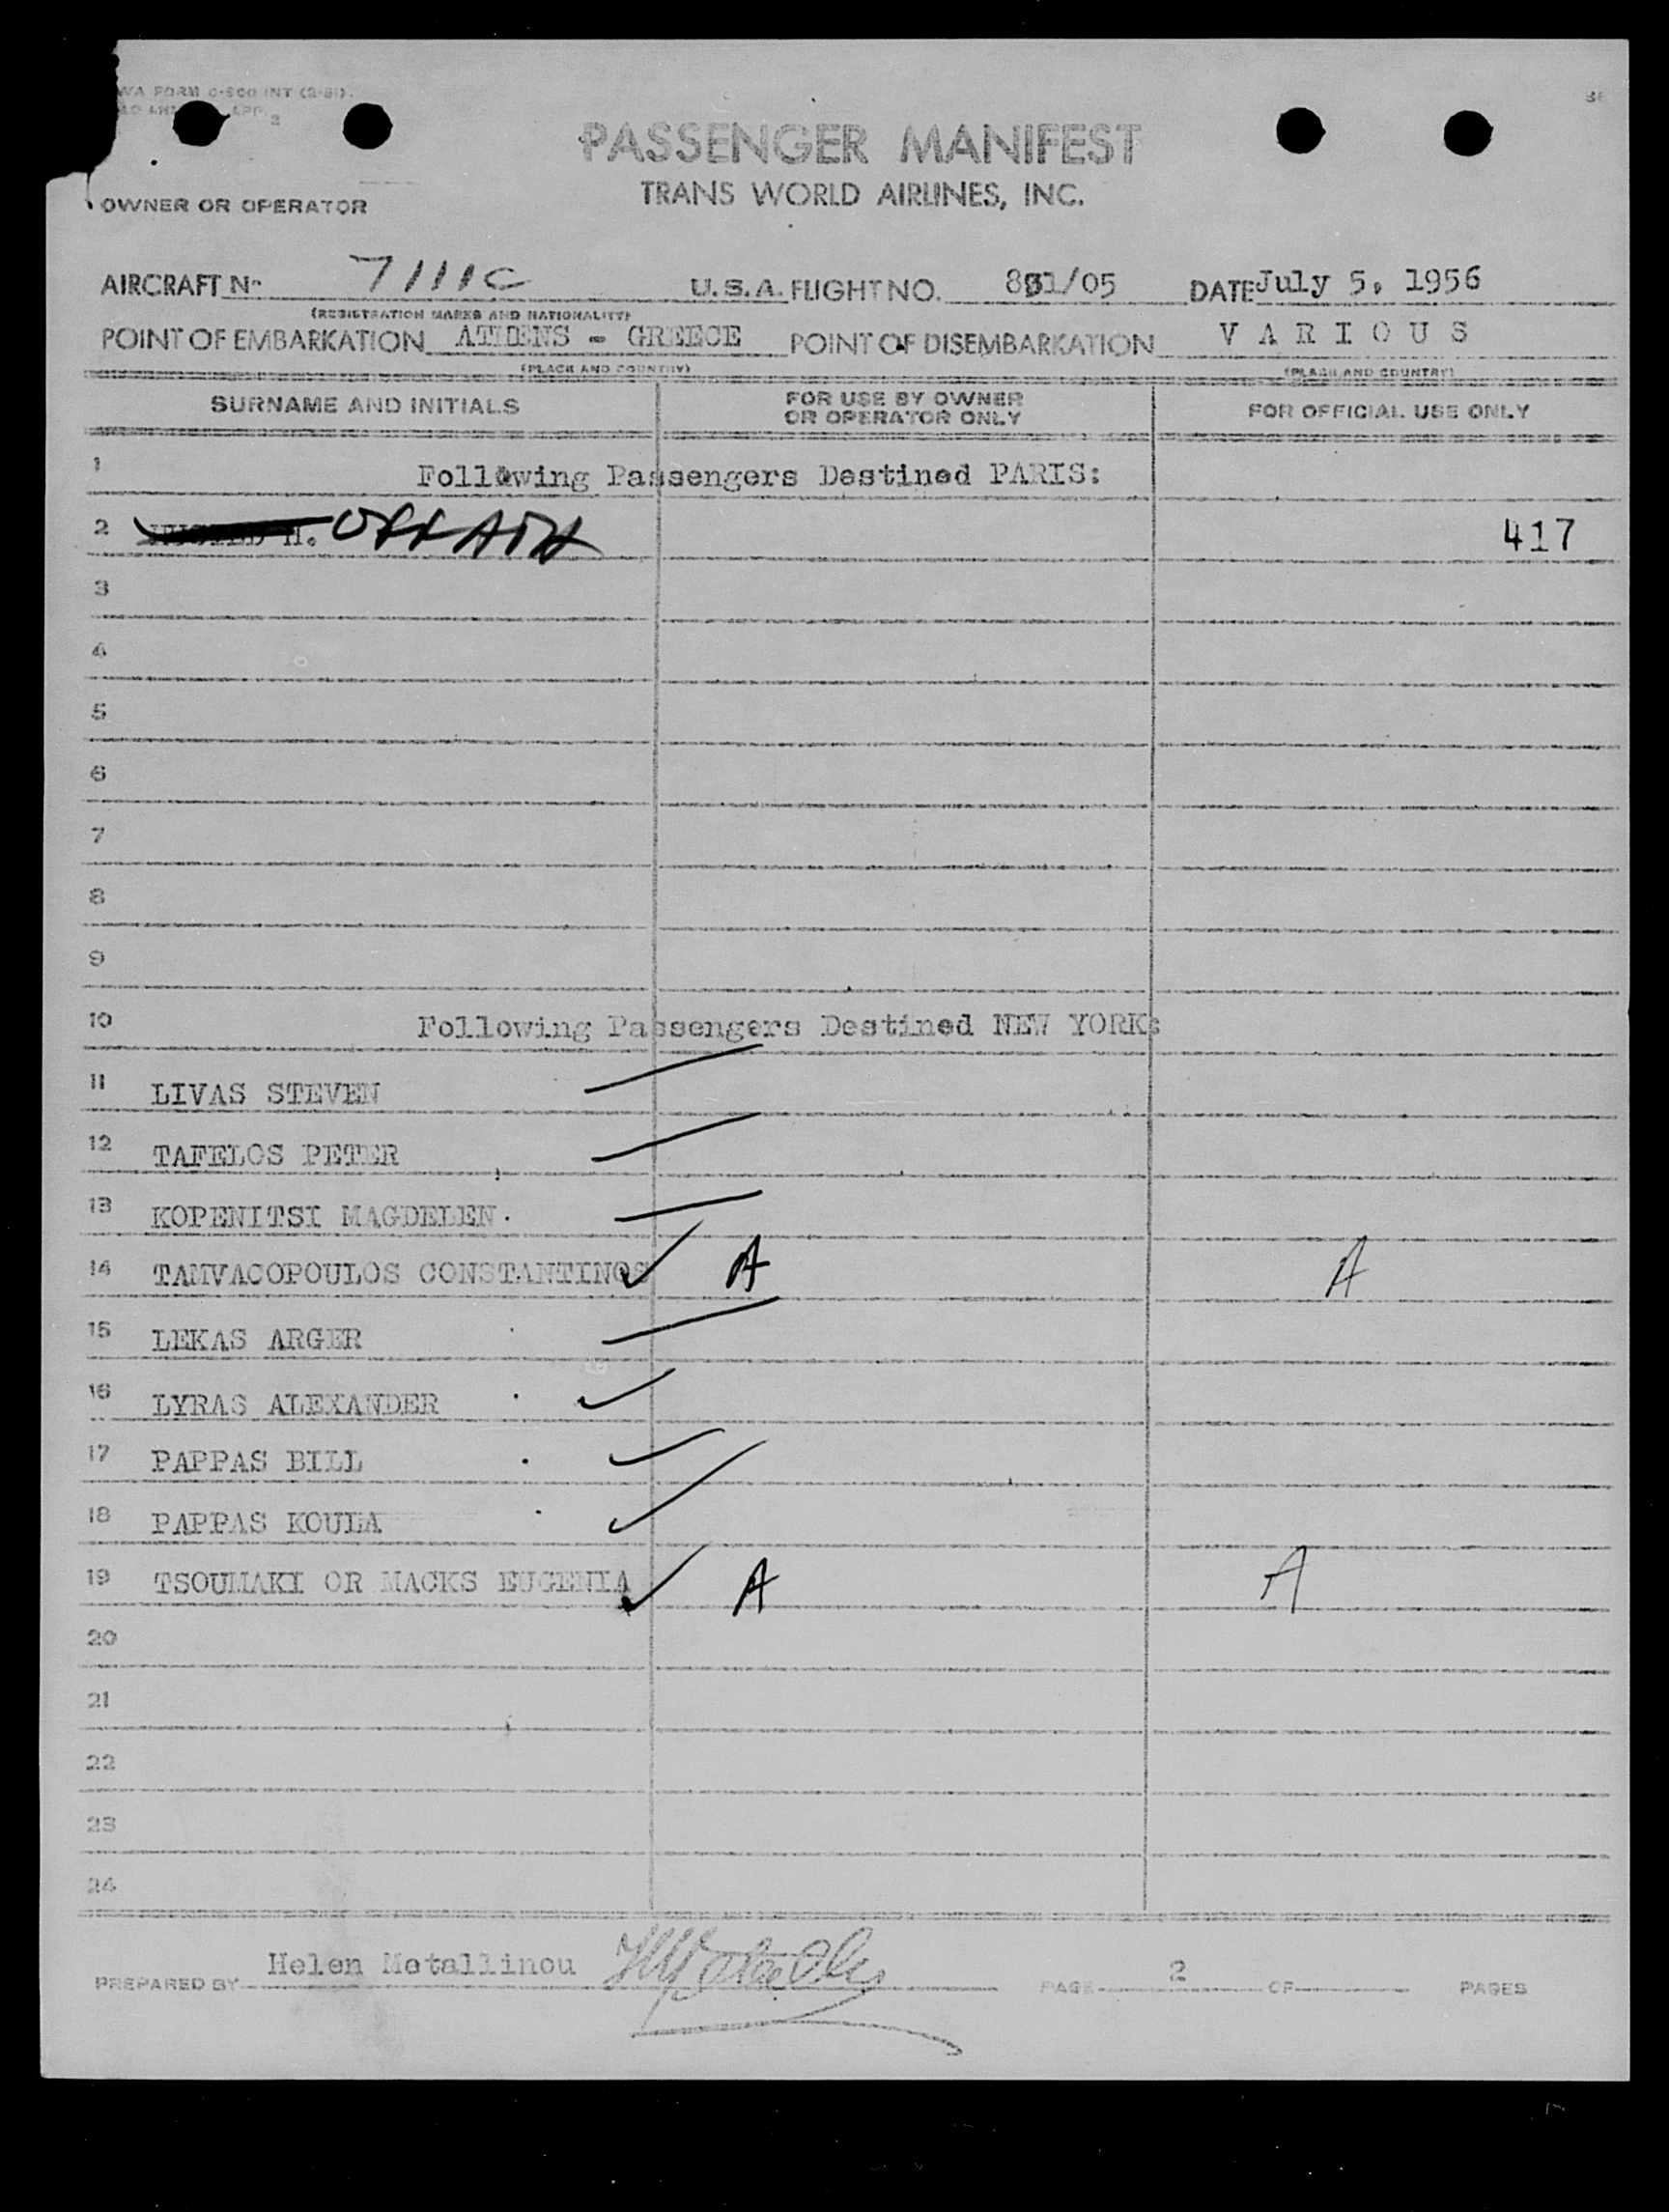 WA FORM 0-900 INT (2-51).
PASSENGER MANIFEST
TRANS WORLD AIRLINES, INC.
OWNER OR OPERATOR
AIRCRAFT No 7111C U.S.A. FLIGHT NO. 831/05 DATE July 5, 1956
(REGISTRATION MARKS AND NATIONALITY)
POINT OF EMBARKATION ATHENS - GREECE POINT OF DISEMBARKATION VARIOUS
(PLACE AND COUNTRY) (PLACE AND COUNTRY)
SURNAME AND INITIALS FOR USE BY OWNER OR OPERATOR ONLY FOR OFFICIAL USE ONLY
1 Following Passengers Destined PARIS:
2 H. 417
3
4
5
6
7
8
9
10 Following Passengers Destined NEW YORK:
11 LIVAS STEVEN
12 TAFELOS PETER
13 KOPENITSI MAGDELEN.
14 TAMVACOPOULOS CONSTANTINOS A A
15 LEKAS ARGER
16 LYRAS ALEXANDER
17 PAPPAS BILL
18 PAPPAS KOULA
19 TSOUMAKI OR MACKS EUGENIA A A
20
21
22
23
24
PREPARED BY Helen Metallinou PAGE 2 OF PAGES